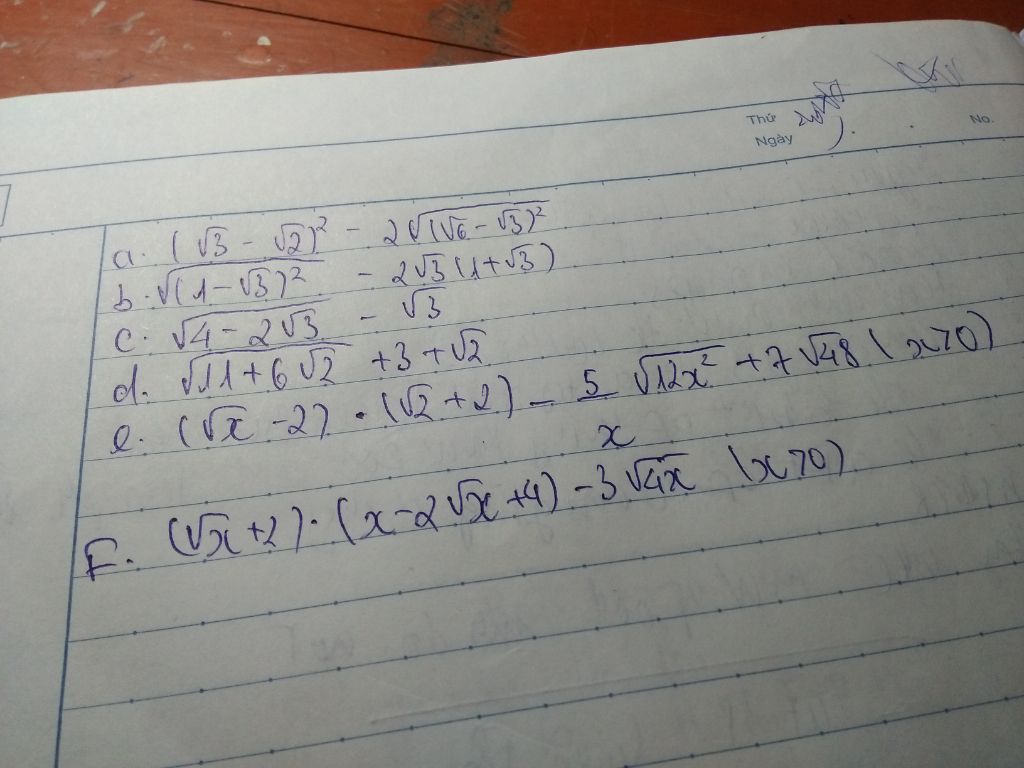 Thứ
Ngày
No.
a. (√3 - √2)² - 2√((√6 - √3)²)
b. √((1 - √3)²) - 2√3(1+√3)
c. √(4 - 2√3) - √3
d. √(11 + 6√2) + 3 + √2
e. (√x - 2) . (√2 + 2) - 5/x √(12x²) + 7√48 (x>0)
F. (√x + 2) . (x - 2√x + 4) - 3√(4x) (x>0)